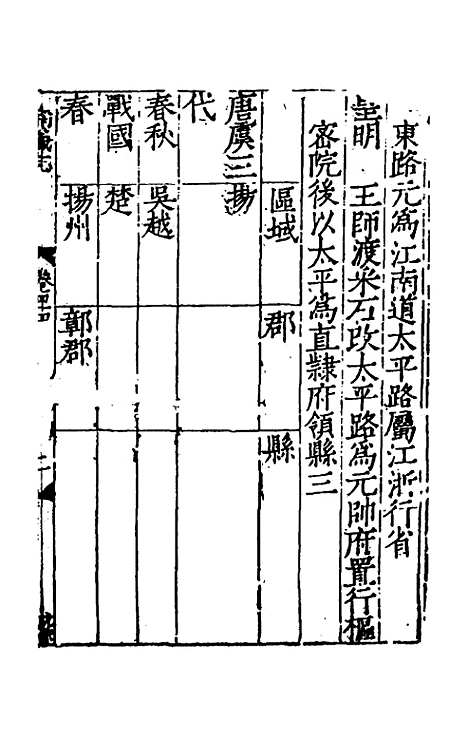 東路元爲江南道太平路屬江浙行省
皇明 王師渡采石改太平路爲元帥府置行樞
密院後以太平爲直隸府領縣三
區域 郡 縣
唐虞三 揚
代
春秋 吳越
戰國 楚
春 揚州 鄣郡
卷之四